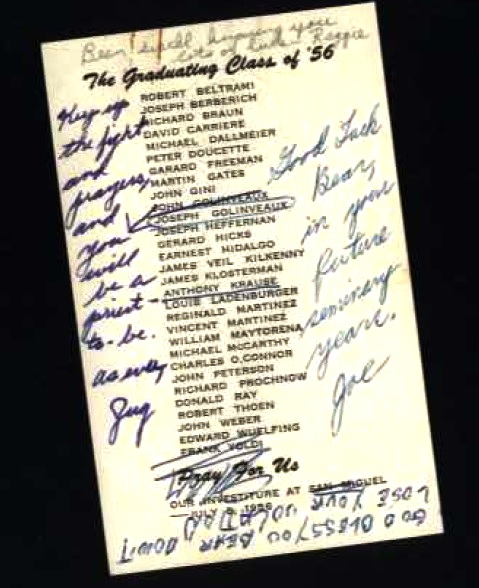 Been swell knowing you
lots of luck Reggie
The Graduating Class of '56
ROBERT BELTRAMI
JOSEPH BERBERICH
RICHARD BRAUN
DAVID CARRIERE
MICHAEL DALLMEIER
PETER DOUCETTE
GARARD FREEMAN
MARTIN GATES
JOHN GINI
JOHN GOLINVEAUX
JOSEPH GOLINVEAUX
JOSEPH HEFFERNAN
GERARD HICKS
EARNEST HIDALGO
JAMES VEIL KILKENNY
JAMES KLOSTERMAN
ANTHONY KRAUSE
LOUIS LADENBURGER
REGINALD MARTINEZ
VINCENT MARTINEZ
WILLIAM MAYTORENA
MICHAEL McCARTHY
CHARLES O,CONNOR
JOHN PETERSON
RICHARD PROCHNOW
DONALD RAY
ROBERT THOEN
JOHN WEBER
EDWARD WUELFING
FRANK YOLDI
Pray For Us
OUR INVESTITURE AT SAN MIGUEL
JULY
Keep up
the fight
and
prayers
and
you
will
be a
priest-
to-be.
as ever
Jug
Good Luck
Bear,
in your
future
seminary
years.
Joe
GOD BLESS YOU BEAR
DON'T
LOSE YOUR